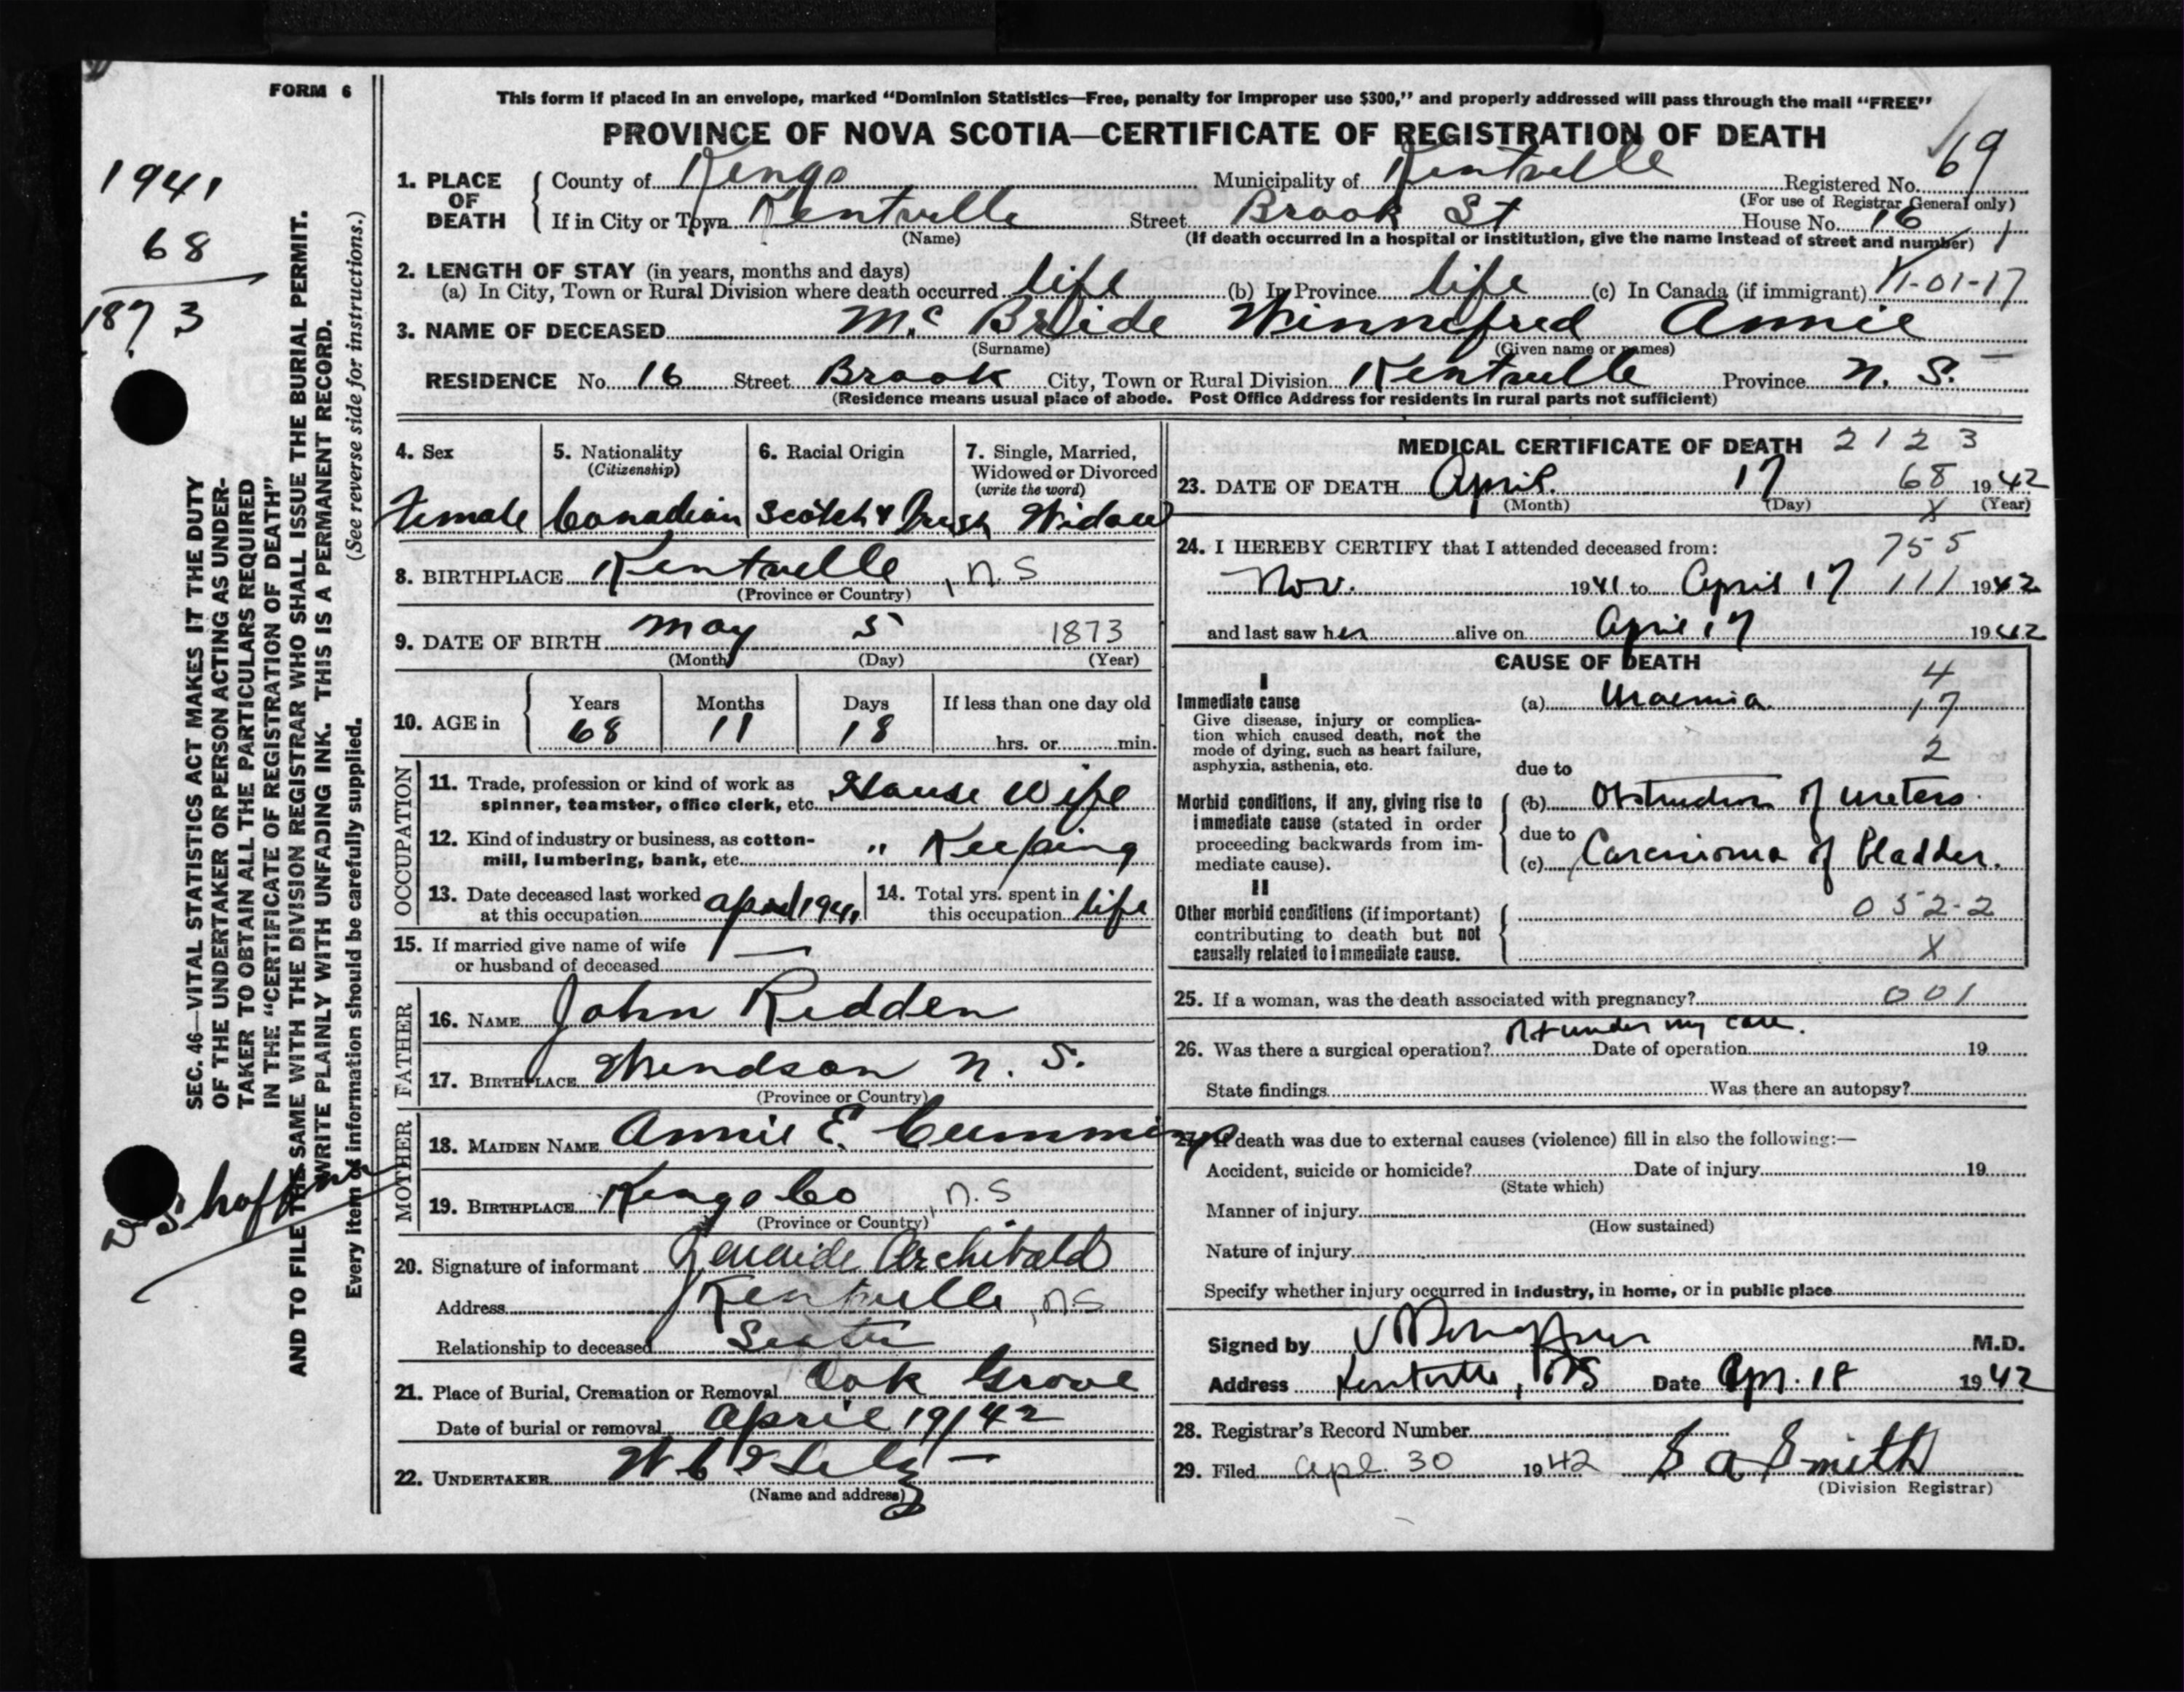 FORM 6
This form if placed in an envelope, marked "Dominion Statistics—Free, penalty for improper use $300," and properly addressed will pass through the mail "FREE"
PROVINCE OF NOVA SCOTIA—CERTIFICATE OF REGISTRATION OF DEATH
69
1941
68
1873
1. PLACE OF DEATH
County of Kings Municipality of Kentville Registered No.
(For use of Registrar General only)
If in City or Town Kentville Street Brook St House No. 16
(Name) (If death occurred in a hospital or institution, give the name instead of street and number)
2. LENGTH OF STAY (in years, months and days)
(a) In City, Town or Rural Division where death occurred life (b) In Province life (c) In Canada (if immigrant) 11-01-17
3. NAME OF DECEASED McBride Winnefred Annie
(Surname) (Given name or names)
RESIDENCE No. 16 Street Brook City, Town or Rural Division Kentville Province N. S.
(Residence means usual place of abode. Post Office Address for residents in rural parts not sufficient)
4. Sex 5. Nationality (Citizenship) 6. Racial Origin 7. Single, Married, Widowed or Divorced (write the word)
Female Canadian Scotch & Irish Widow
8. BIRTHPLACE Kentville, N.S
(Province or Country)
9. DATE OF BIRTH May 5 1873
(Month) (Day) (Year)
10. AGE in Years Months Days If less than one day old
68 11 18 hrs. or min.
OCCUPATION
11. Trade, profession or kind of work as spinner, teamster, office clerk, etc. House Wife
12. Kind of industry or business, as cotton-mill, lumbering, bank, etc. " Keeping
13. Date deceased last worked at this occupation April 1941
14. Total yrs. spent in this occupation life
15. If married give name of wife or husband of deceased —
FATHER
16. NAME John Redden
17. BIRTHPLACE Windsor N. S.
(Province or Country)
MOTHER
18. MAIDEN NAME Annie E. Cummings
19. BIRTHPLACE Kings Co, N.S
(Province or Country)
20. Signature of informant Archibald
Address Kentville, NS
Relationship to deceased Sister
21. Place of Burial, Cremation or Removal Oak Grove
Date of burial or removal April 19/42
22. UNDERTAKER
(Name and address)
MEDICAL CERTIFICATE OF DEATH 2123
23. DATE OF DEATH April 17 68 1942
(Month) (Day) X (Year)
24. I HEREBY CERTIFY that I attended deceased from: 755
Nov. 1941 to April 17 111 1942
and last saw her alive on April 17 1942
CAUSE OF DEATH
4
17
2
I
Immediate cause
Give disease, injury or complication which caused death, not the mode of dying, such as heart failure, asphyxia, asthenia, etc.
(a) Uraemia.
due to
Morbid conditions, if any, giving rise to immediate cause (stated in order proceeding backwards from immediate cause).
(b) Obstruction of ureters.
due to
(c) Carcinoma of bladder.
II
Other morbid conditions (if important) contributing to death but not causally related to immediate cause.
052-2
X
25. If a woman, was the death associated with pregnancy? 001
26. Was there a surgical operation? Not under my care. Date of operation 19
State findings Was there an autopsy?
27. If death was due to external causes (violence) fill in also the following:—
Accident, suicide or homicide? Date of injury 19
(State which)
Manner of injury
(How sustained)
Nature of injury
Specify whether injury occurred in industry, in home, or in public place
Signed by M.D.
Address Kentville, NS Date Apr. 18 1942
28. Registrar's Record Number
29. Filed Apl. 30 1942 S A Smith
(Division Registrar)
SEC. 46—VITAL STATISTICS ACT MAKES IT THE DUTY
OF THE UNDERTAKER OR PERSON ACTING AS UNDER-
TAKER TO OBTAIN ALL THE PARTICULARS REQUIRED
IN THE "CERTIFICATE OF REGISTRATION OF DEATH"
AND TO FILE THE SAME WITH THE DIVISION REGISTRAR WHO SHALL ISSUE THE BURIAL PERMIT.
WRITE PLAINLY WITH UNFADING INK. THIS IS A PERMANENT RECORD.
Every item of information should be carefully supplied. (See reverse side for instructions.)